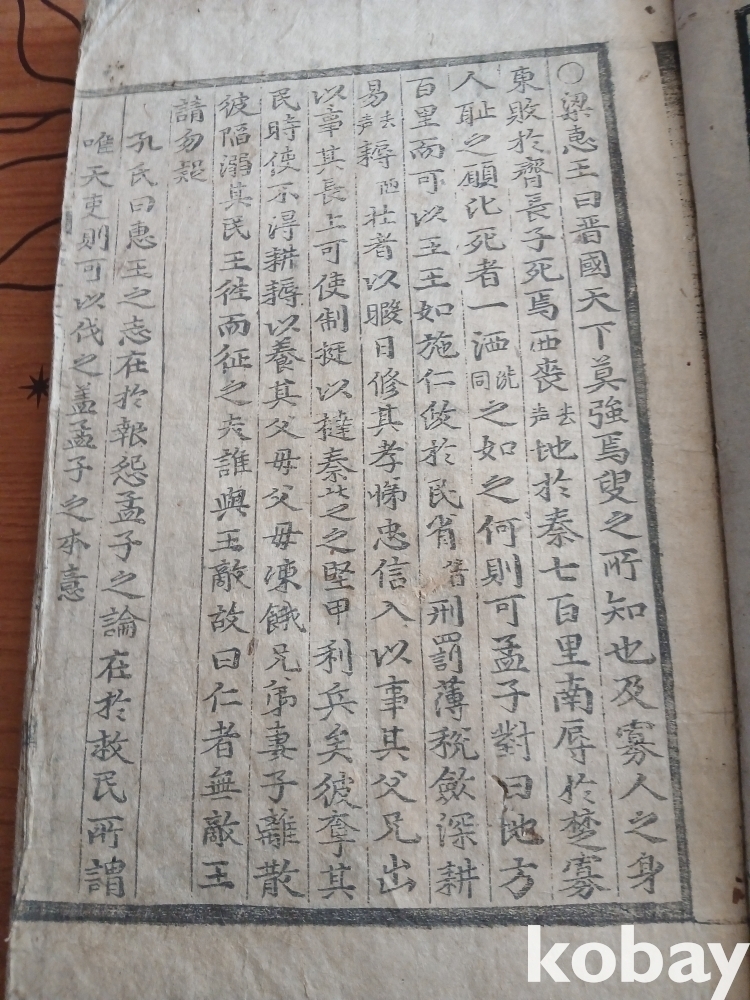 ○梁惠王曰晋國天下莫強焉叟之所知也及寡人之身
東敗於齊長子死焉西喪去声地於秦七百里南辱於楚寡
人耻之願比死者一洒洗同之如之何則可孟子對曰地方
百里而可以王王如施仁政於民省眚刑罰薄稅斂深耕
易去声耨壯者以暇日修其孝悌忠信入以事其父兄出
以事其長上可使制挺以撻秦楚之堅甲利兵矣彼奪其
民時使不淂耕耨以養其父母父母凍餓兄弟妻子離散
彼陷溺其民王徃而征之夫誰與王敵故曰仁者無敵王
請勿疑
孔氏曰惠王之志在於報怨孟子之論在於救民所謂
唯天吏則可以伐之盖孟子之本意
kobay